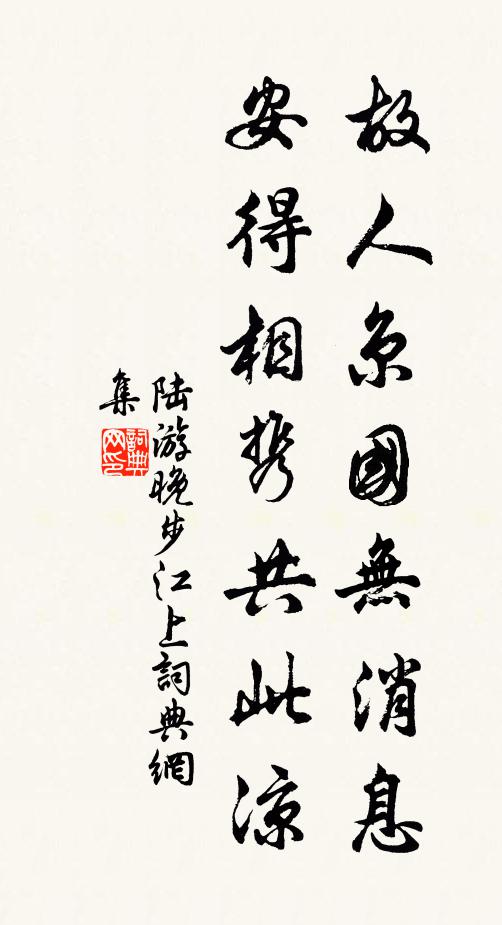 故人京國無消息
安得相携共此凉
陆游晚步江上詞典網
集
詞典
网印